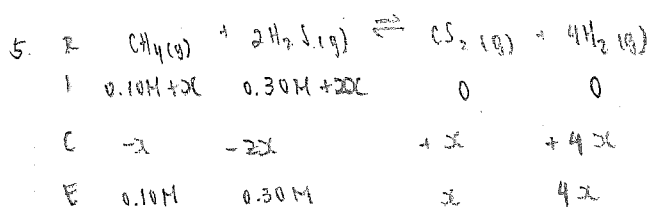 5. R CH4(g) + 2H2S(g) ⇌ CS2(g) + 4H2(g)
I 0.10M+x 0.30M+2x 0 0
C -x -2x +x +4x
E 0.10M 0.30M x 4x